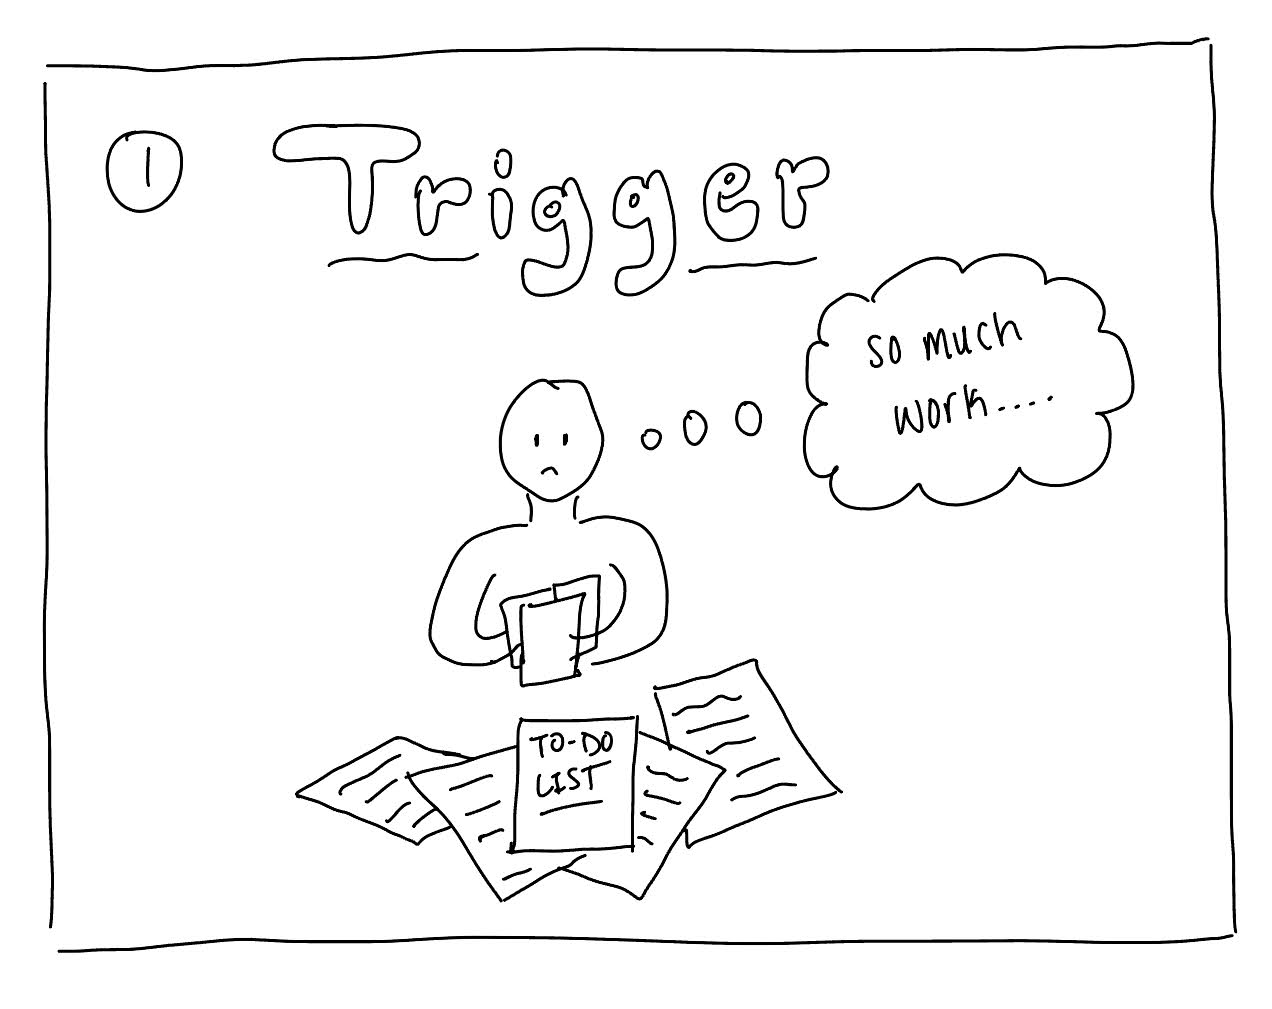 1
Trigger
so much
work....
TO-DO
LIST